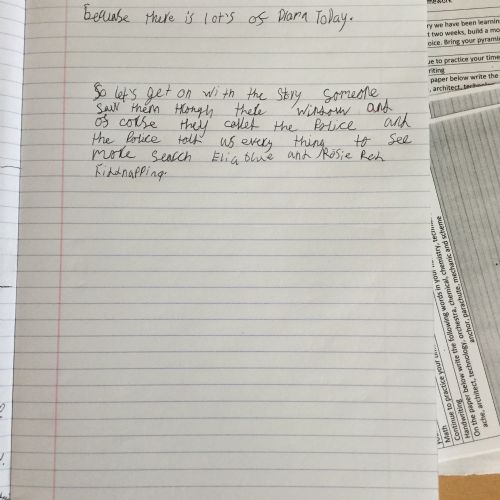 Becuase there is lot's of Drama Today.
So let's get on with the Story Someone
Saw them though there window and
of corse they called the Police and
the Police told us every thing to See
more Search Ella blue and Rosie Red
Kindnapping.
ry we have been learnin
t two weeks, build a mo
oice. Bring your pyrami
ue to practice your time
riting
paper below write the
, architect, technology
Math
Continue to practice your
Handwriting
On the paper below write the following words in your
ache, architect, technology, orchestra, chemical, chemistry, techni
anchor, parachute, mechanic and scheme